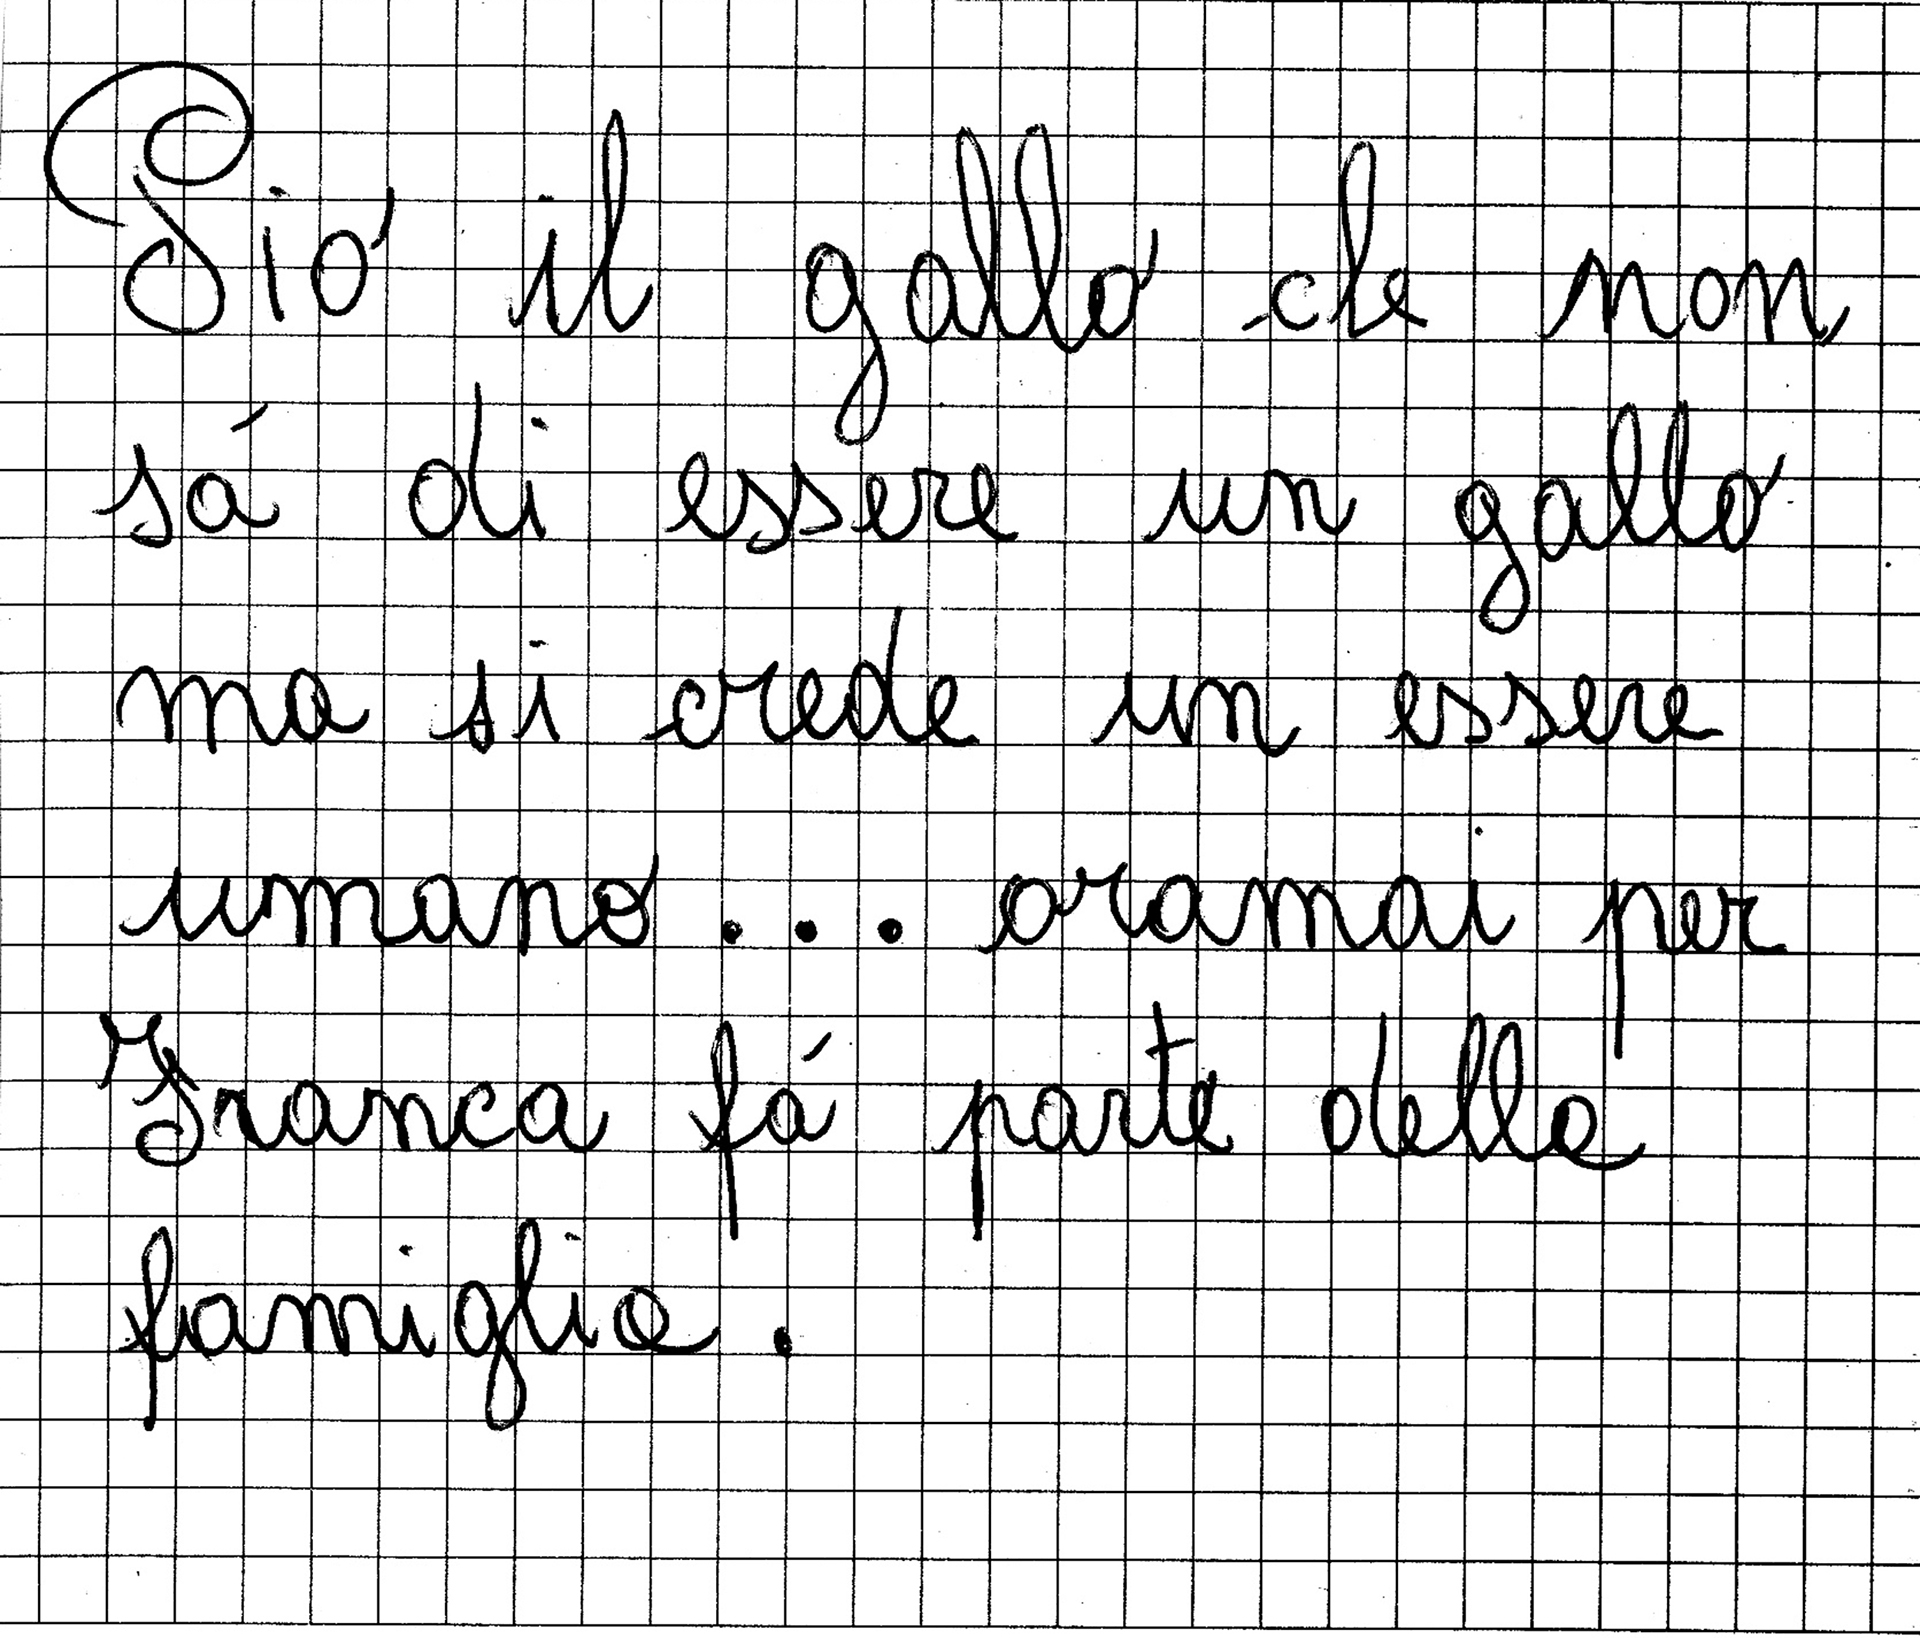 Pio il gallo che non
sá di essere un gallo
ma si crede un essere
umano... oramai per
Franca fá parte della
famiglia.